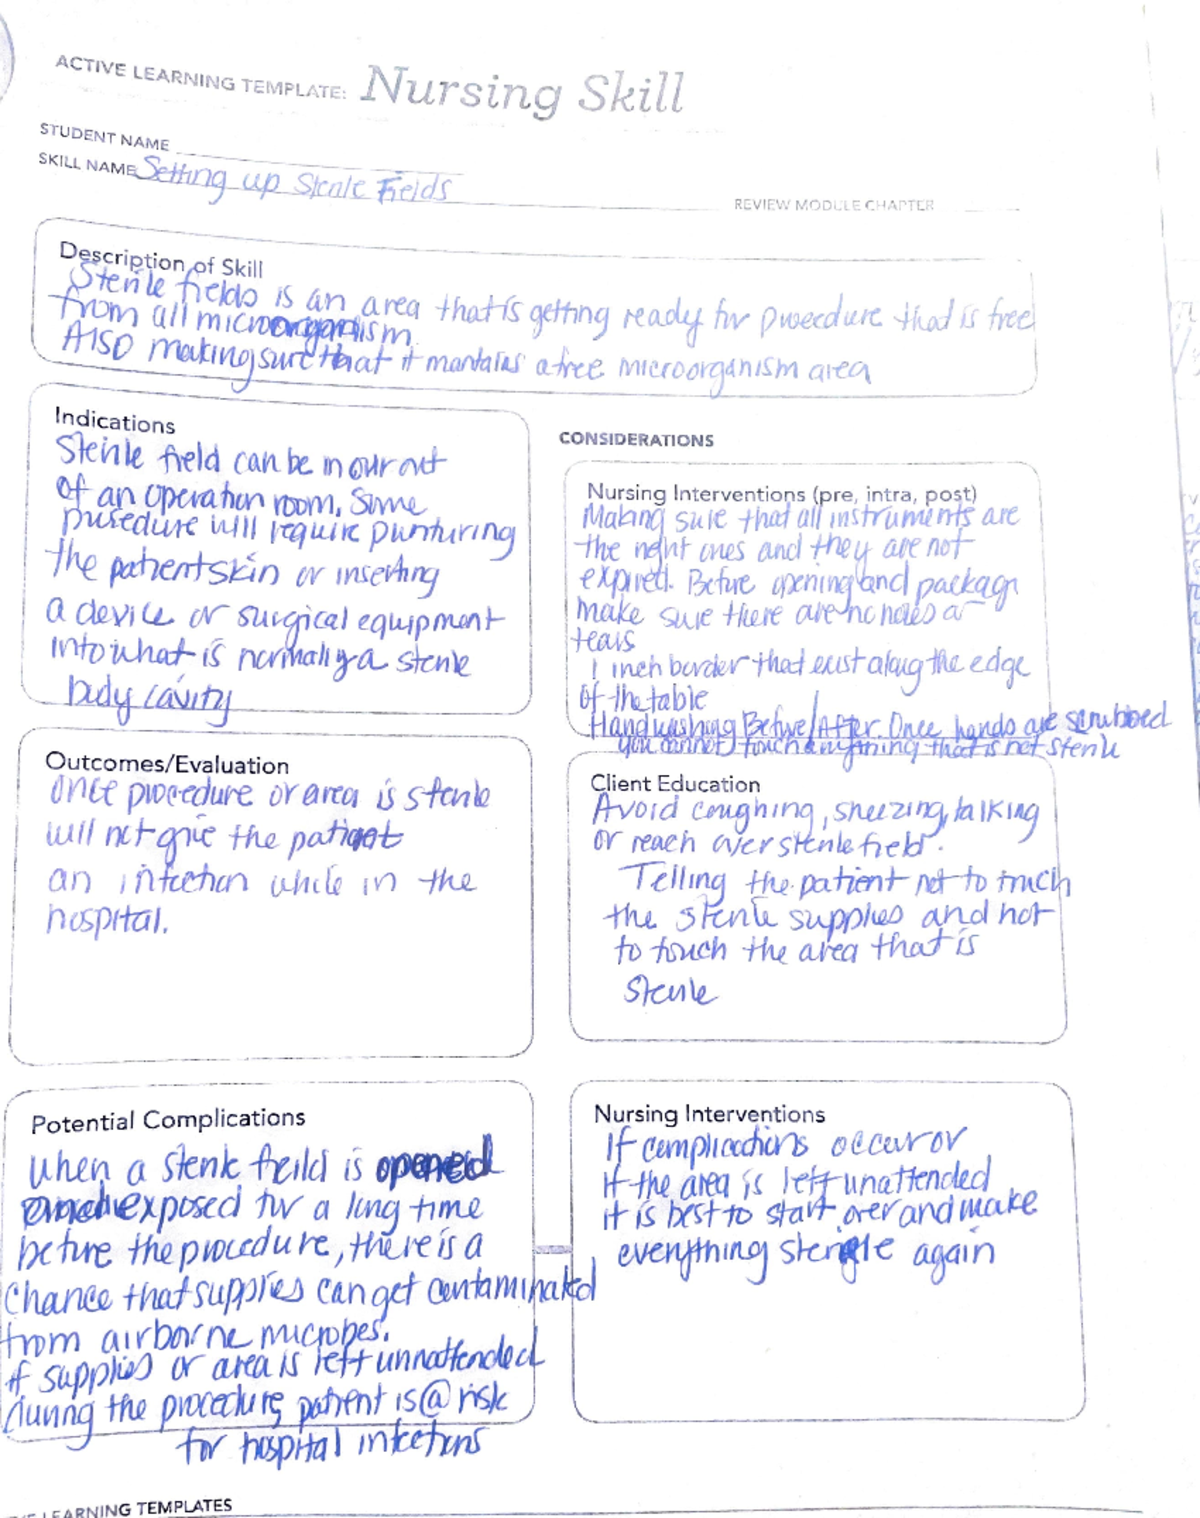 ACTIVE LEARNING TEMPLATE: Nursing Skill
STUDENT NAME
SKILL NAME Setting up Sterile Fields
REVIEW MODULE CHAPTER
Description of Skill
Sterile fields is an area that is getting ready for puseedure that is free
from all microorganism.
Also making sure that it mantains a free microorganism area
Indications
Sterile field can be in our out
of an operation room. Some
pusedure will require punturing
the patient skin or inserting
a device or surgical equipment
into what is normaliy a sterile
body cavity
CONSIDERATIONS
Nursing Interventions (pre, intra, post)
Making sure that all instruments are
the right ones and they are not
expired. Before opening and package
make sure there are no holes or
tears
1 inch border that exist along the edge
of the table
Handwashing Before/After. Once hands are scrubbed
you cannot touch anything that is not sterile
Outcomes/Evaluation
Once procedure or area is sterile
will not give the patient
an infection while in the
hospital.
Client Education
Avoid coughing, sneezing, talking
or reach over sterile field.
Telling the patient not to touch
the sterile supplies and not
to touch the area that is
sterile
Potential Complications
When a sterile feild is opened
exposed for a long time
before the procedure, there is a
chance that supplies can get contaminated
from airborne microbes.
if supplies or area is left unnattended
during the procedure, patient is @ risk
for hospital infections
Nursing Interventions
If complications occur or
if the area is left unattended
it is best to start over and make
everything sterile again
LEARNING TEMPLATES